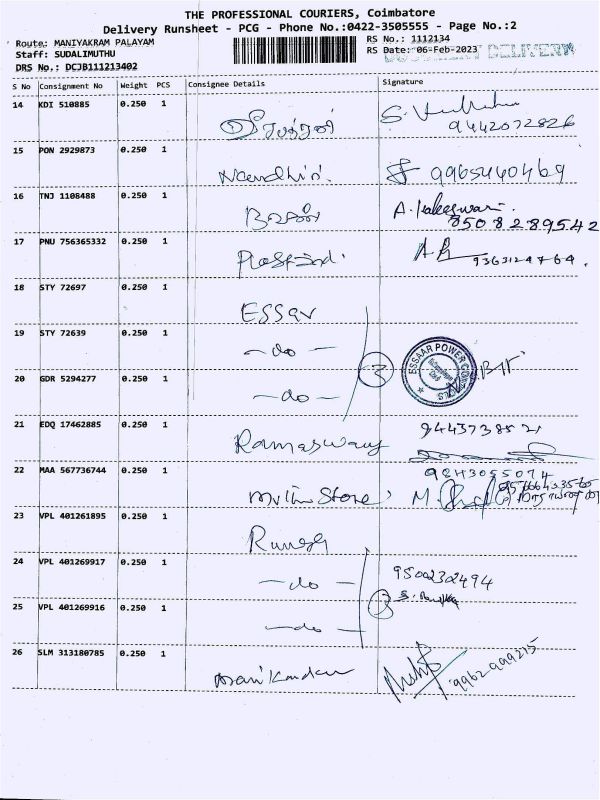 THE PROFESSIONAL COURIERS, Coimbatore
Delivery Runsheet - PCG - Phone No.:0422-3505555 - Page No.:2
Route: MANIYAKRAM PALAYAM
RS No.: 1112134
Staff: SUDALIMUTHU
RS Date: 06-Feb-2023
DELIVERY
DRS No.: DCJB111213402
S No Consignment No Weight PCS Consignee Details Signature
14 KDI 510885 0.250 1
9442072826
15 PON 2929873 0.250 1
Nandhini. 9965440469
16 TNJ 1108488 0.250 1
A.
8508289542
17 PNU 756365332 0.250 1
9363124764.
18 STY 72697 0.250 1
ESSAR
19 STY 72639 0.250 1
-do-
ESSAAR POWER
20 GDR 5294277 0.250 1
-do-
21 EDQ 17462885 0.250 1
9443738521
Ramaswamy
22 MAA 567736744 0.250 1
9843055074
Store, M.
23 VPL 401261895 0.250 1
24 VPL 401269917 0.250 1
-do- 9500232494
25 VPL 401269916 0.250 1
-do- 3
26 SLM 313180785 0.250 1
Manikandan 9962999275